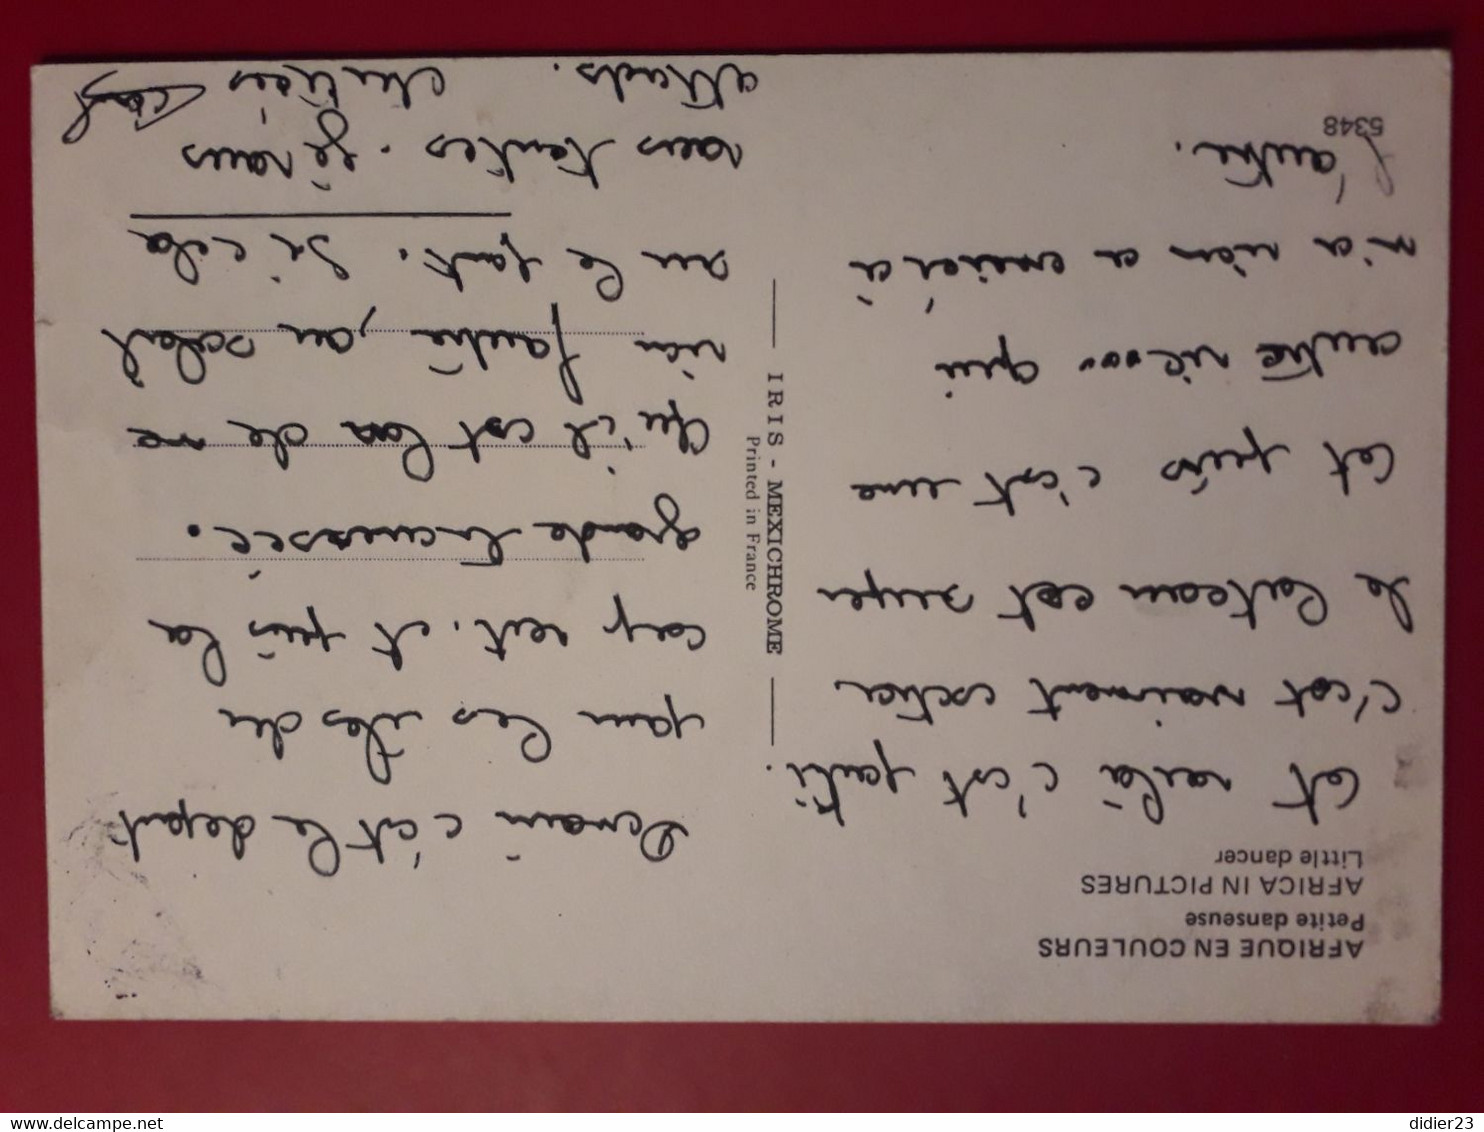 AFRIQUE EN COULEURS
Petite danseuse
AFRICA IN PICTURES
Little dancer
Et voilà c'est parti.
c'est vraiment extra
le bateau est super
Et puis c'est une
autre vie qui
n'a rien a envier à
l'autre.
5348
IRIS - MEXICHROME
Printed in France
Demain c'est le depart
pour les iles du
cap vert. et puis la
grande traversée.
Qu'il est bon de ne
rien foutre, au soleil
sur le pont. Si cela
vous tentes. Je vous
attends.
didier23